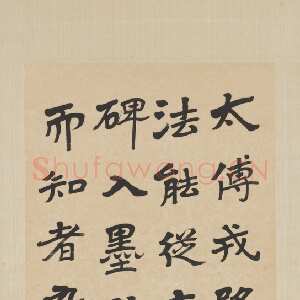 太傅戎路
法能從
碑入墨
而知者
Shufawang.CN